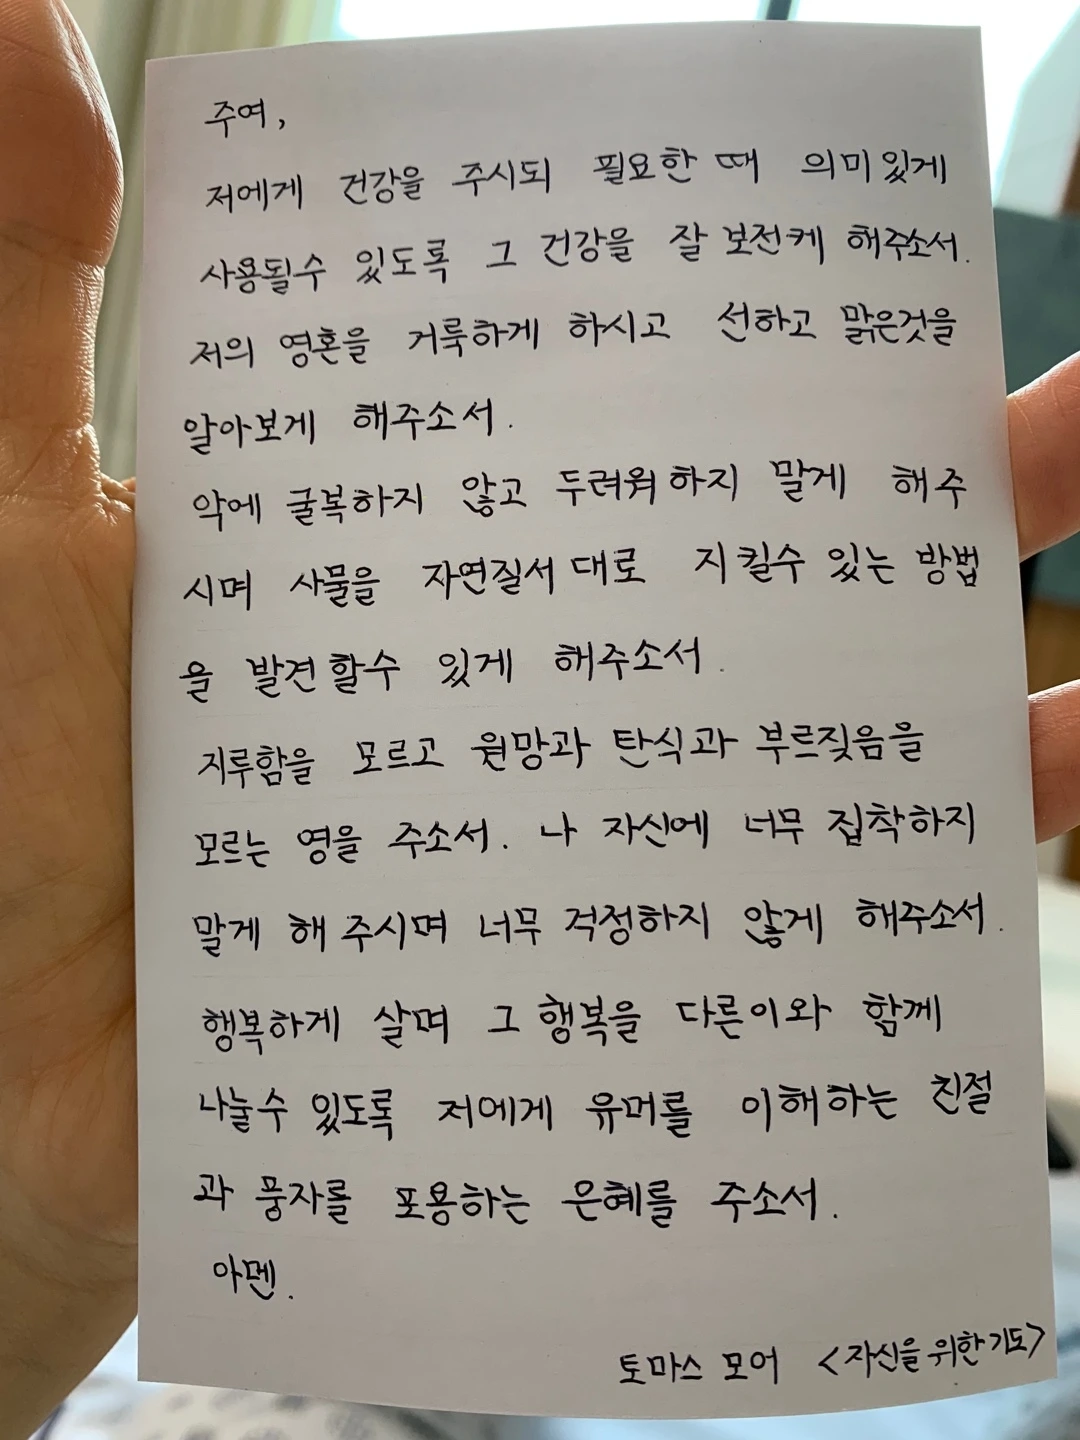 주여,
저에게 건강을 주시되 필요한 때 의미있게
사용될수 있도록 그 건강을 잘 보전케 해주소서.
저의 영혼을 거룩하게 하시고 선하고 맑은것을
알아보게 해주소서.
악에 굴복하지 않고 두려워하지 말게 해주
시며 사물을 자연질서대로 지킬수 있는 방법
을 발견할수 있게 해주소서.
지루함을 모르고 원망과 탄식과 부르짖음을
모르는 영을 주소서. 나 자신에 너무 집착하지
말게 해 주시며 너무 걱정하지 않게 해주소서.
행복하게 살며 그 행복을 다른이와 함께
나눌수 있도록 저에게 유머를 이해하는 친절
과 풍자를 포용하는 은혜를 주소서.
아멘.
토마스 모어 <자신을 위한 기도>